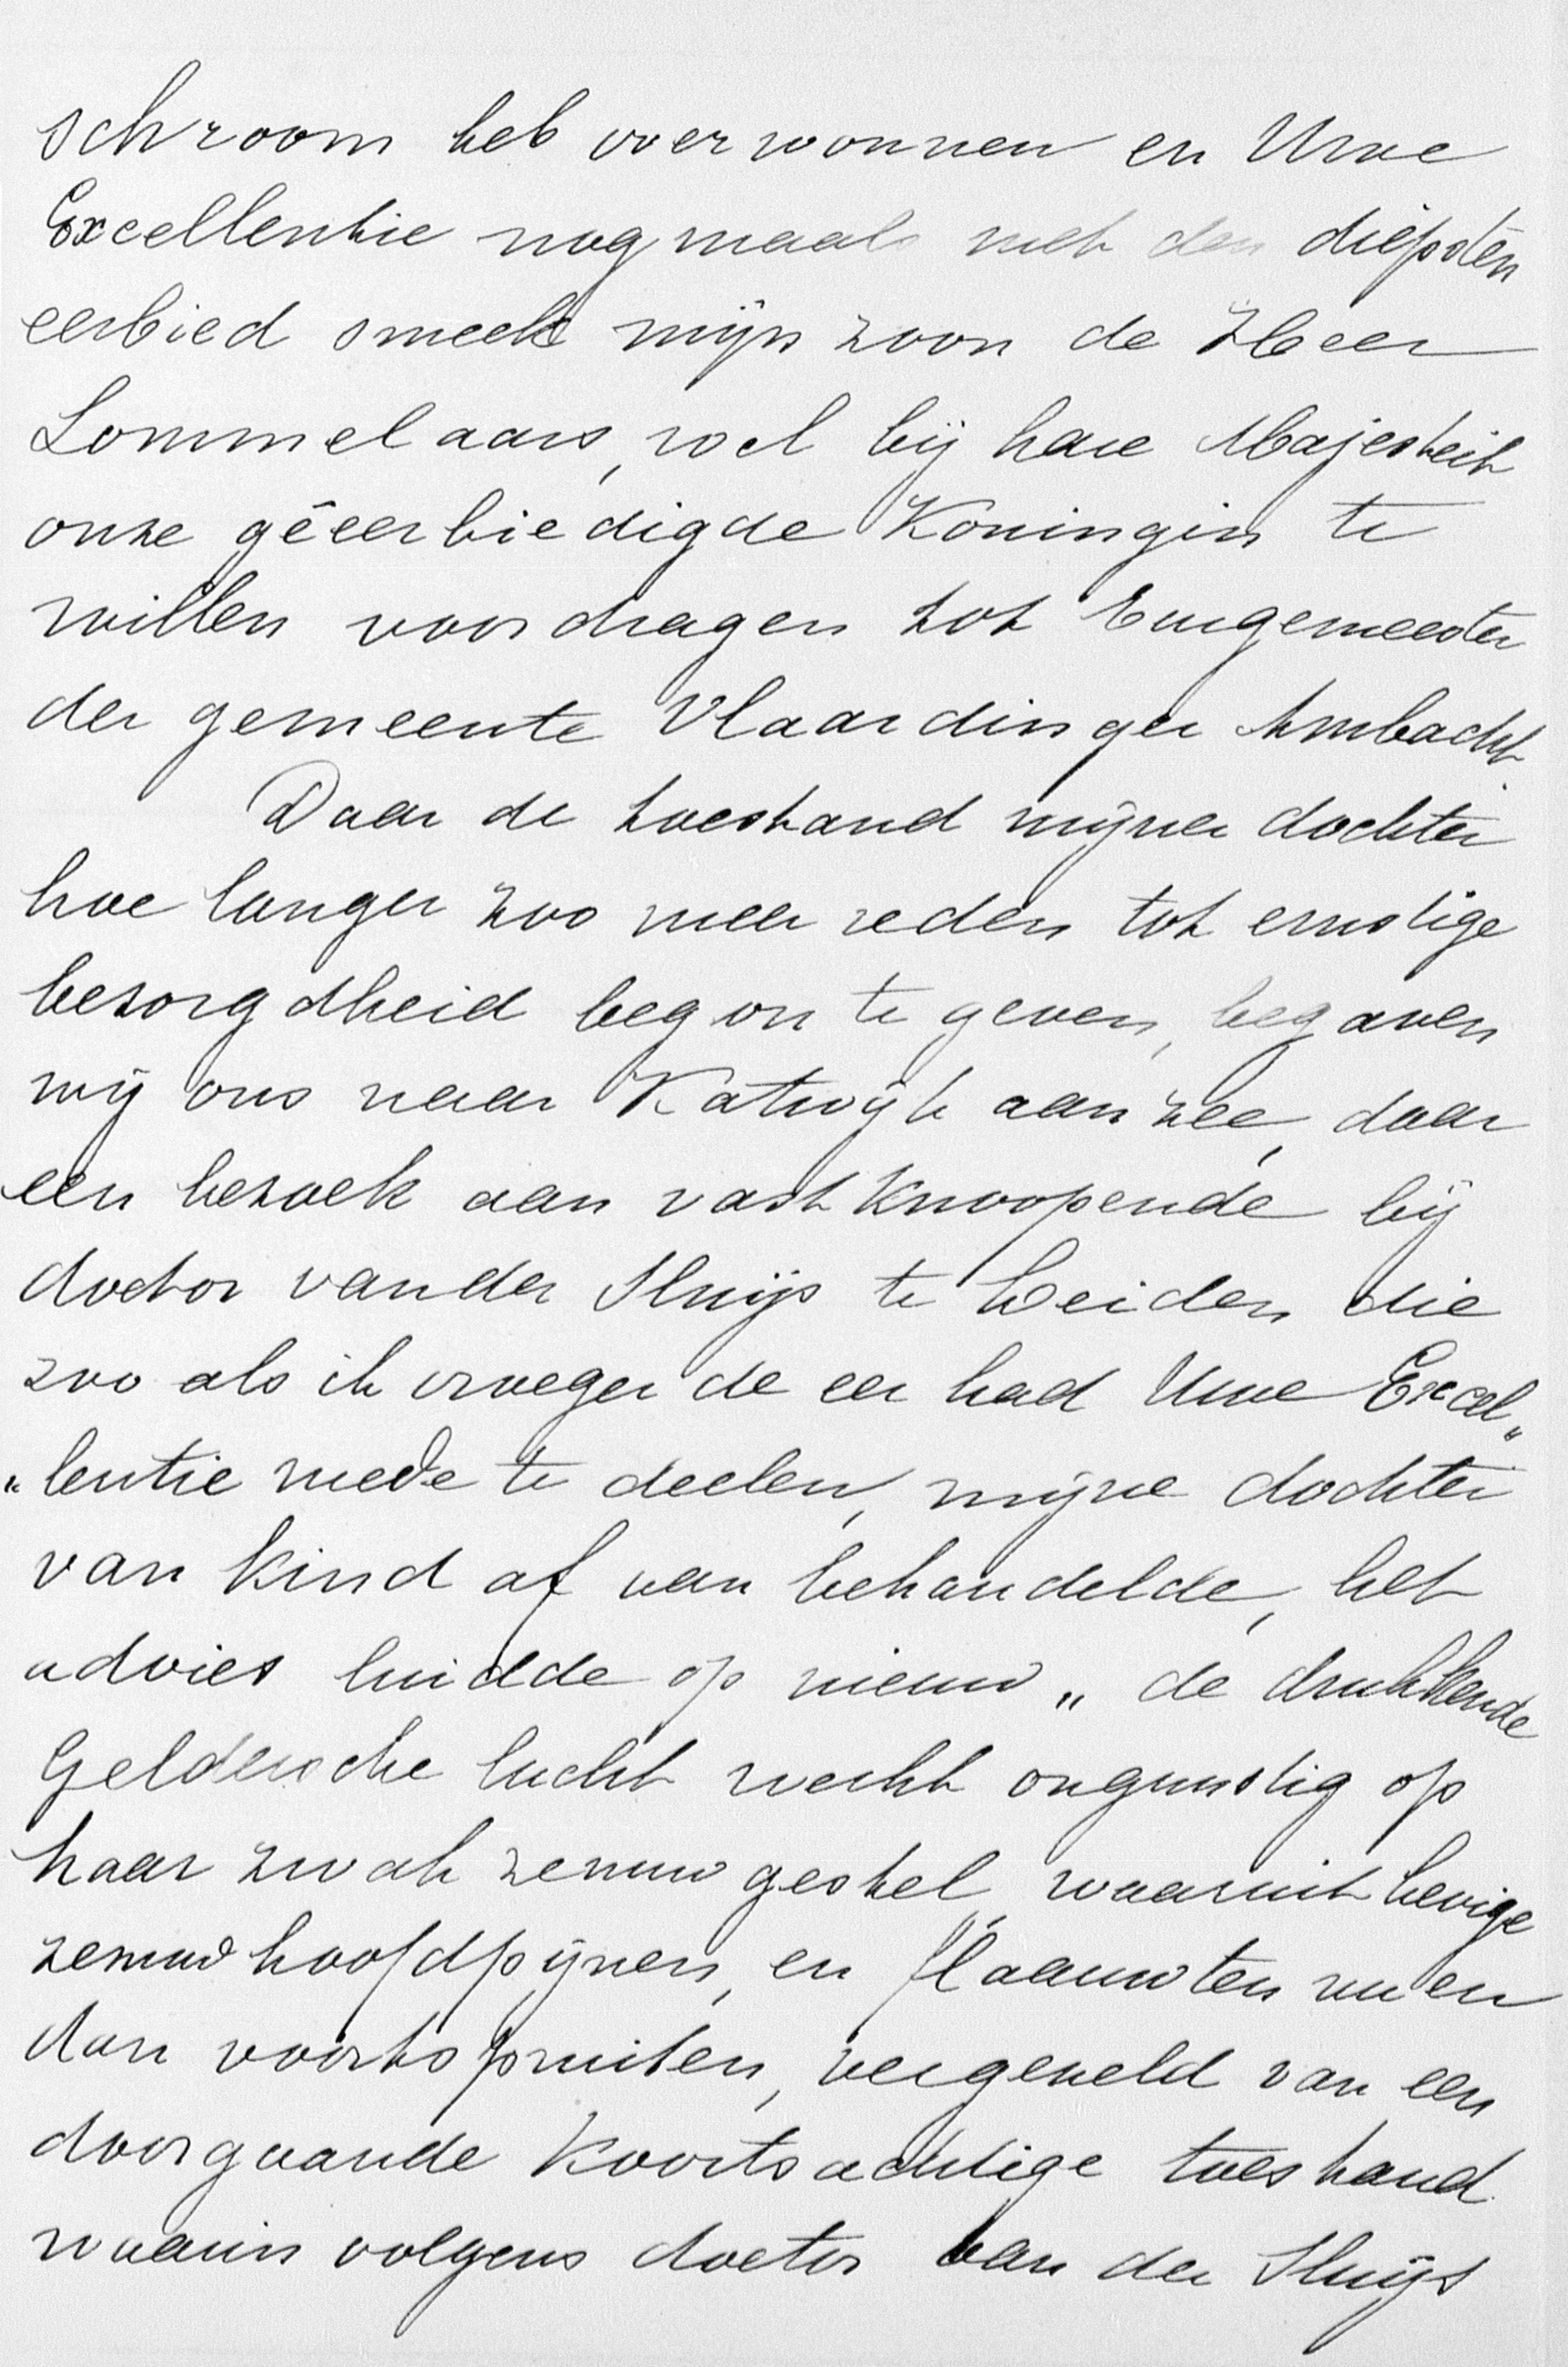 schroom heb overwonnen en Uwe
Excellentie nogmaals met den diepsten
eerbied smeek mijn zoon de Heer
Lommelaars, wel bij hare Majesteit
onze geëerbiedigde Koningin te
willen voordragen tot Burgemeester
der gemeente Vlaardinger Ambacht.
Daar de toestand mijner dochter
hoe langer zoo meer reden tot ernstige
bezorgdheid begon te geven, begaven
wij ons naar Katwijk aan zee, daar
een bezoek aan vast knoopende bij
doctor van der Sluijs te Leiden die
zoo als ik vroeger de eer had Uwe Excel„
„lentie mede te deelen, mijne dochter
van kind af aan behandelde, het
advies luidde op nieuw „ de drukkende
Geldersche lucht werkt ongunstig op
haar zwak zenuwgestel, waaruit hevige
zenuwhoofdpijnen, en flaauwten nu en
dan voortspruiten, vergezeld van een
doorgaande koortsachtige toestand
waarin volgens doctor van der Sluijs